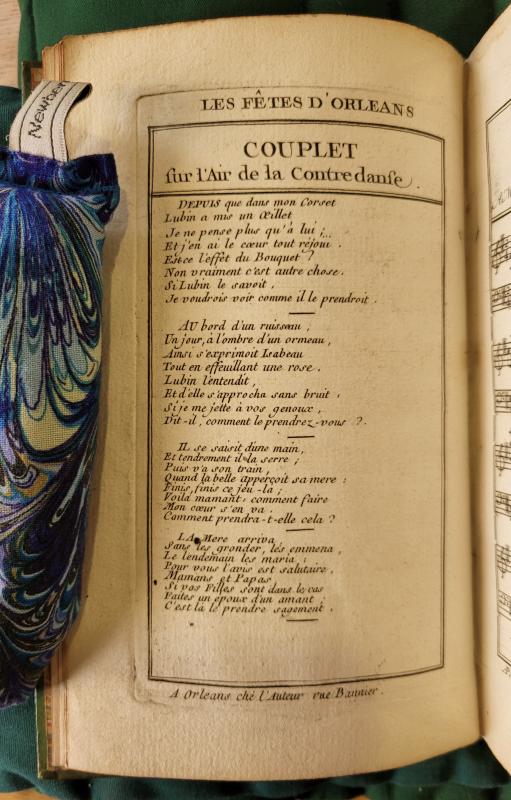 Newber
LES FÊTES D'ORLEANS
COUPLET
sur l'Air de la Contredanse.
DEPUIS que dans mon Corset
Lubin a mis un Œillet
Je ne pense plus qu'à lui ;
Et j'en ai le cœur tout réjoui .
Est ce l'effèt du Bouquet ?
Non vraiment c'est autre chose.
Si Lubin le savoit ,
Je voudrois voir comme il le prendroit .
AU bord d'un ruisseau ,
Un jour, à l'ombre d'un ormeau ,
Ainsi s'exprimoit Isabeau
Tout en effeuillant une rose .
Lubin l'entendit ,
Et d'elle s'approcha sans bruit ,
Si je me jette à vos genoux ,
Dit-il, comment le prendrez-vous ?.
IL se saisit d'une main,
Et tendrement il la serre ;
Puis va son train ,
Quand la belle apperçoit sa mere :
Finis, finis ce jeu-la ;
Voila mamant: comment faire
Mon cœur s'en va .
Comment prendra-t-elle cela ?
LA Mere arriva
Sans les gronder, les emmena ,
Le lendemain les maria ;
Pour vous l'avis est salutaire ,
Mamans et Papas ,
Si vos Filles sont dans le cas
Faites un epoux d'un amant ;
C'est là le prendre sagement .
A Orleans ché l'Auteur rue Bannier.